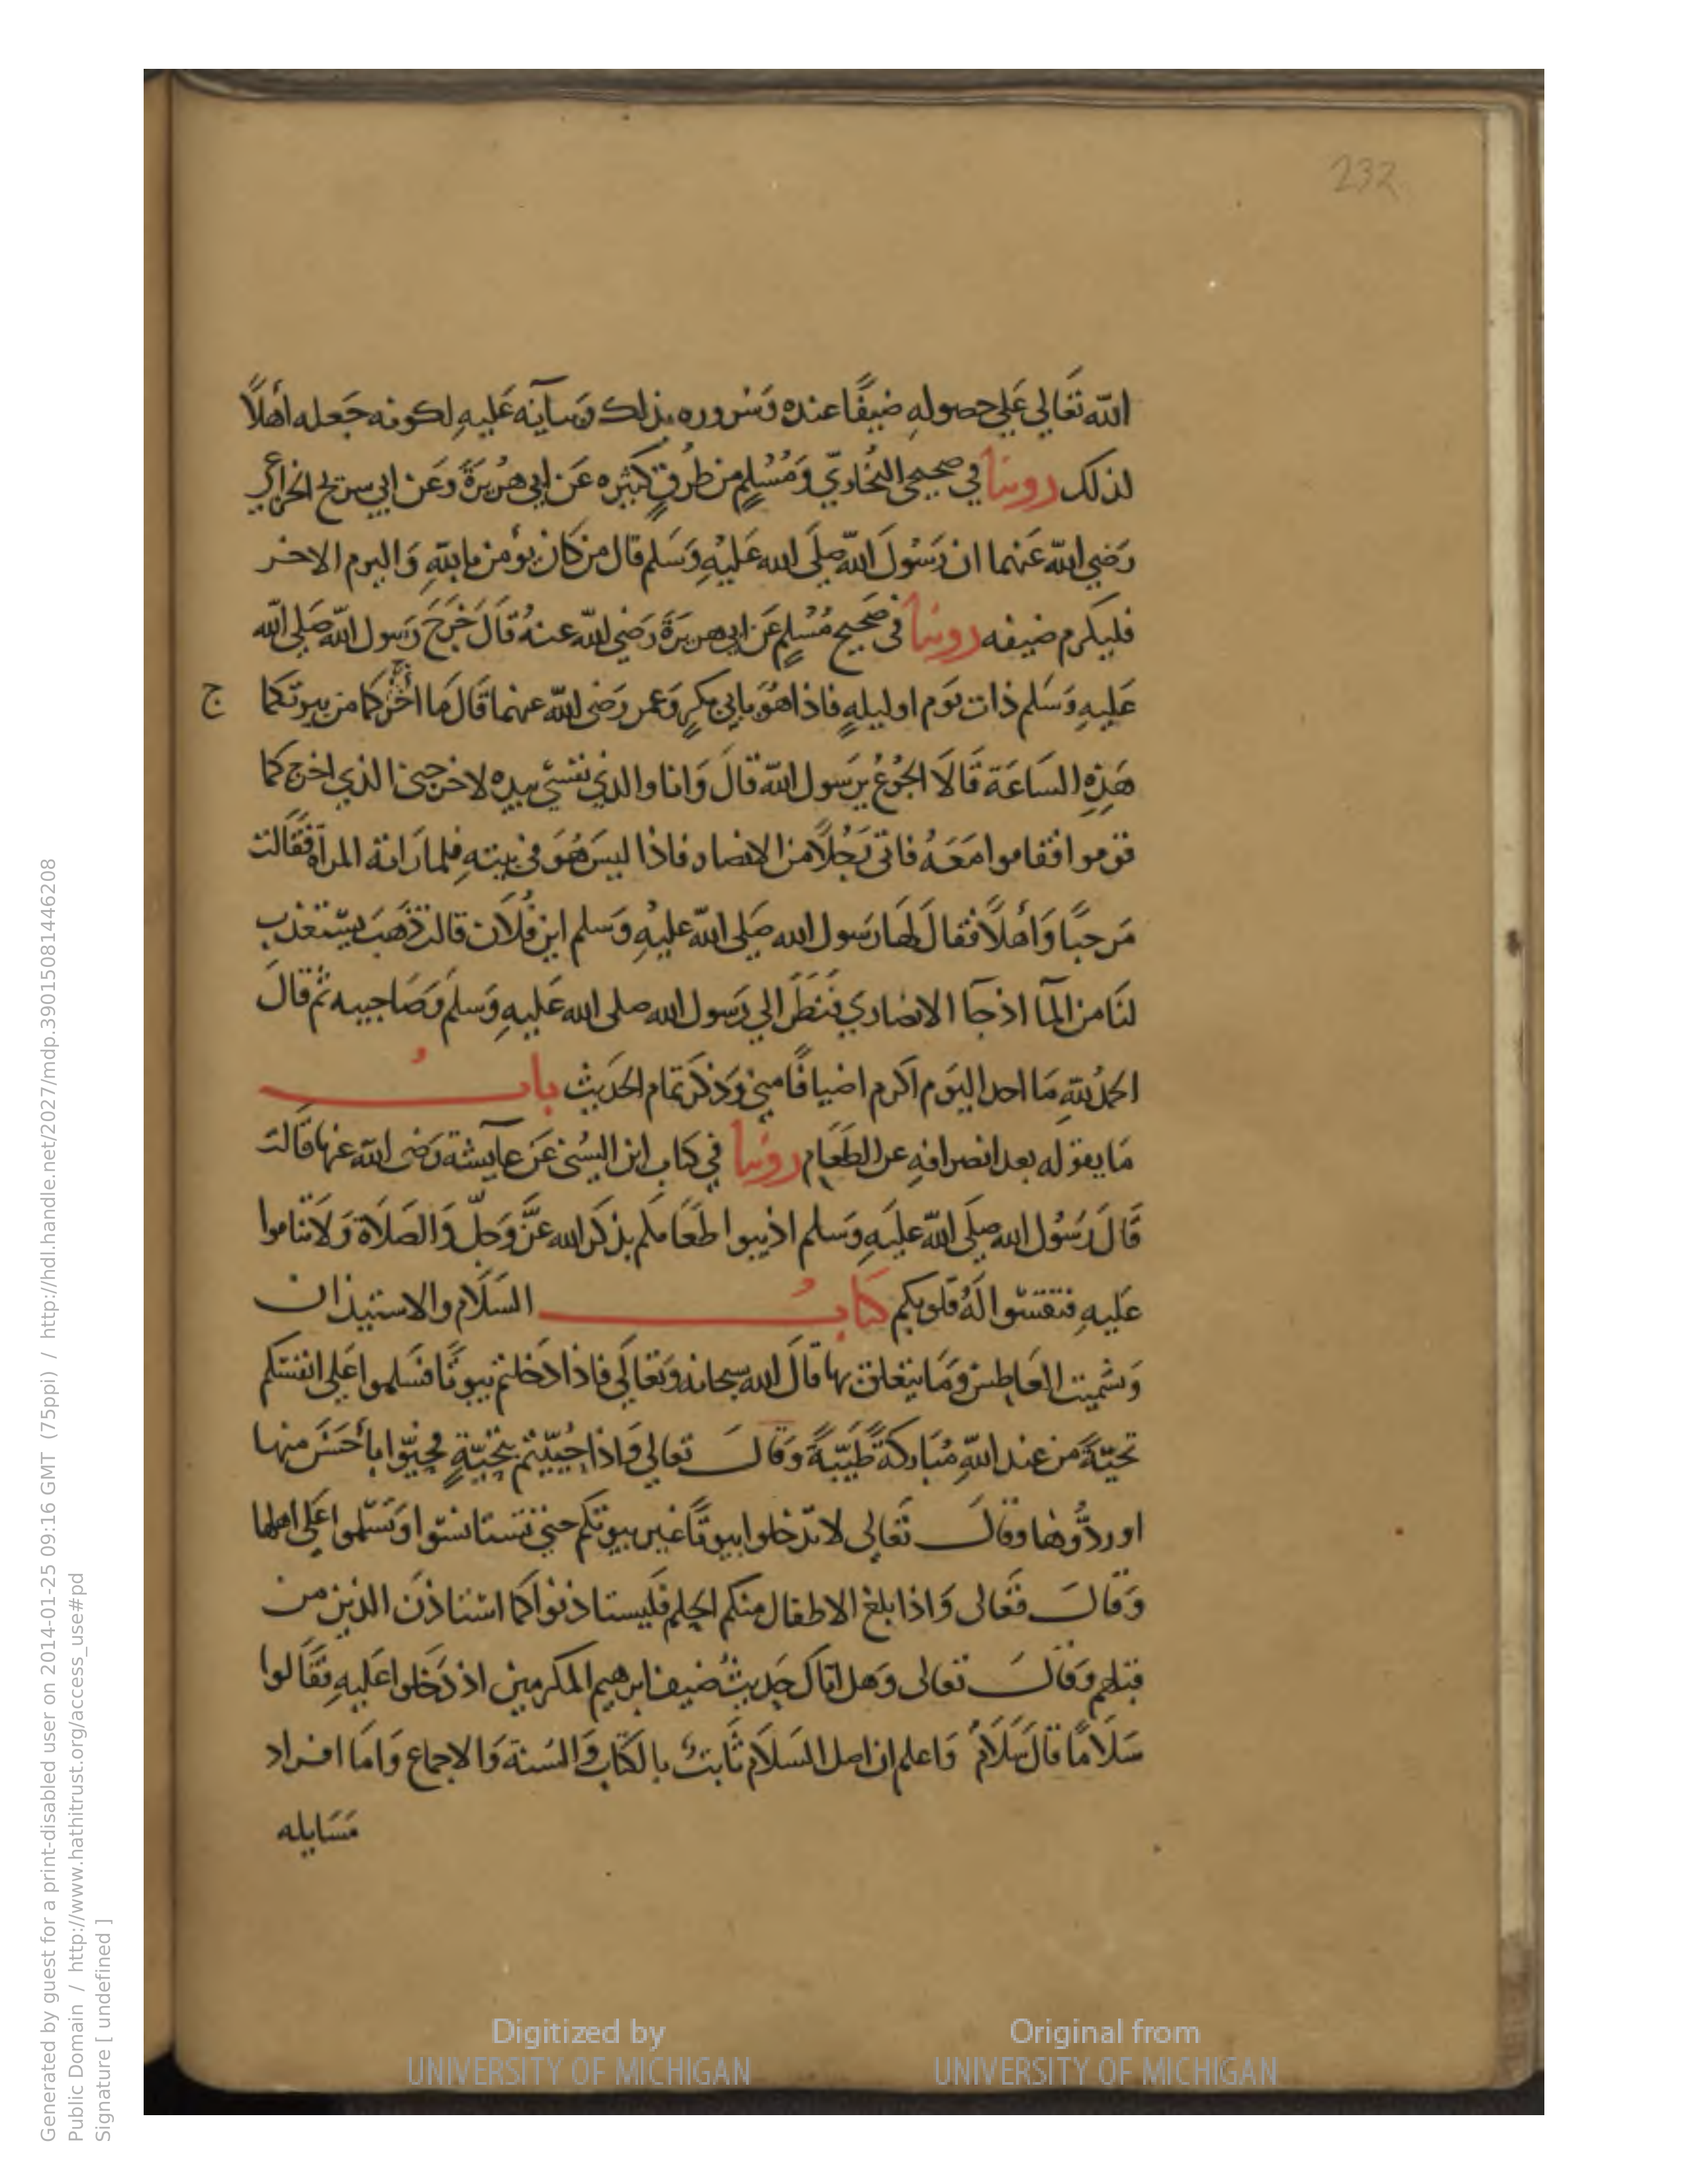 232
الله تعالى علي حصولهِ ضيفًا عنده وَسُروره بذلك وثنآيه عَليهِ لكونه جَعله أهلًا
لذلك روينا في صحيحي البُخاريّ وَمُسْلِمٍ من طُرقٍ كثيره عَن ابي هُريرَةَ وَعَن ابي سريح الخزاعي
رَضي الله عَنهما ان رَسُولَ الله صلَى الله عَليْهِ وَسَلم قال من كان يؤمن بالله وَاليوم الاخر
فليكرم ضيفه روينا في صَحيح مُسْلمٍ عَن ابي هريرَةَ رَضي الله عنهُ قالَ خَرَجَ رَسول الله صَلى الله
عَليهِ وَسَلم ذات يَوم او ليلهٍ فاذا هُوَ بابي بكرٍ وَعمر رَضي الله عنهما قَالَ مَا أخرجكما من بيوتكما
ج
هَذِهِ السَاعَة قَالَا الجُوُعُ يرَسول الله قالَ وَانا والذي نفسي بيده لاخرجني الذي اخرجكما
قوموا فقاموا مَعَهُ فاتى رَجُلًا من الانصار فاذا ليسَ هُوَ في بيتهِ فلما رَاته المرآة فقَالت
مَرحبًا وَأهلًا فقالَ لهَا رَسول الله صَلى الله عليْهِ وَسلم اين فُلَان قالت ذهَبَ يستعذب
لنَا من المآ اذ جآ الانصاري فَنَظَرَ الي رَسول الله صلى الله عَليهِ وَسلم وَصَاحبيه ثُم قالَ
الحمدُ للهِ مَا احد اليَوم اكرم اضيافًا مني وَذكرَ تمام الحَديث بابُ
مَا يقوله بعد انصرافهِ عن الطعَام روينا في كتاب ابن السُني عَن عآيشة رَضي الله عنها قَالت
قَالَ رَسُول الله صلَى الله عليَهِ وَسلم اذيبوا طعَامكم بذكر الله عَزَّ وَجلّ وَالصَلَاة وَلَا تناموا
عَليهِ فتقسوا لَهُ قلوبكم كتابُ السَلَام والاستيذان
وَتشميت العَاطس وَمَا يتعَلق بها قالَ الله سبحانه وَتعَالَى فاذا دَخلتم بيوتًا فسَلموا عَلى انفسكم
تحيّةً من عند اللهِ مُبَاركةً طَيّبَةً وَقالَ تعالي وَاذا حُييّتم بتحيّةٍ فحيّوا بأحسَنَ منها
او ردُّوها وقالَ تَعَالى لا تدخلوا بيوتًا غير بيوتكم حتي تستانسوا وَتسَلموا عَلى اهلها
وَقالَ تعَالى وَاذا بلغ الاطفال منكم الحلم فَليستاذنوا كما استاذنَ الذين من
قبلهم وَقالَ تعالى وَهل اتاك حَديثُ ضيف ابرهيم المكرمين اذ دَخلوا عَليهِ فقَالوا
سَلَامًا قالَ سَلَامٌ وَاعلم ان اصل السَلَام ثابتٌ بالكتاب وَالسُنة وَالاجماع وَامَا افراد
مَسَايله
Generated by guest for a print-disabled user on 2014-01-25 09:16 GMT (75ppi) / http://hdl.handle.net/2027/mdp.39015081446208
Public Domain / http://www.hathitrust.org/access_use#pd
Signature [ undefined ]
Digitized by
UNIVERSITY OF MICHIGAN
Original from
UNIVERSITY OF MICHIGAN